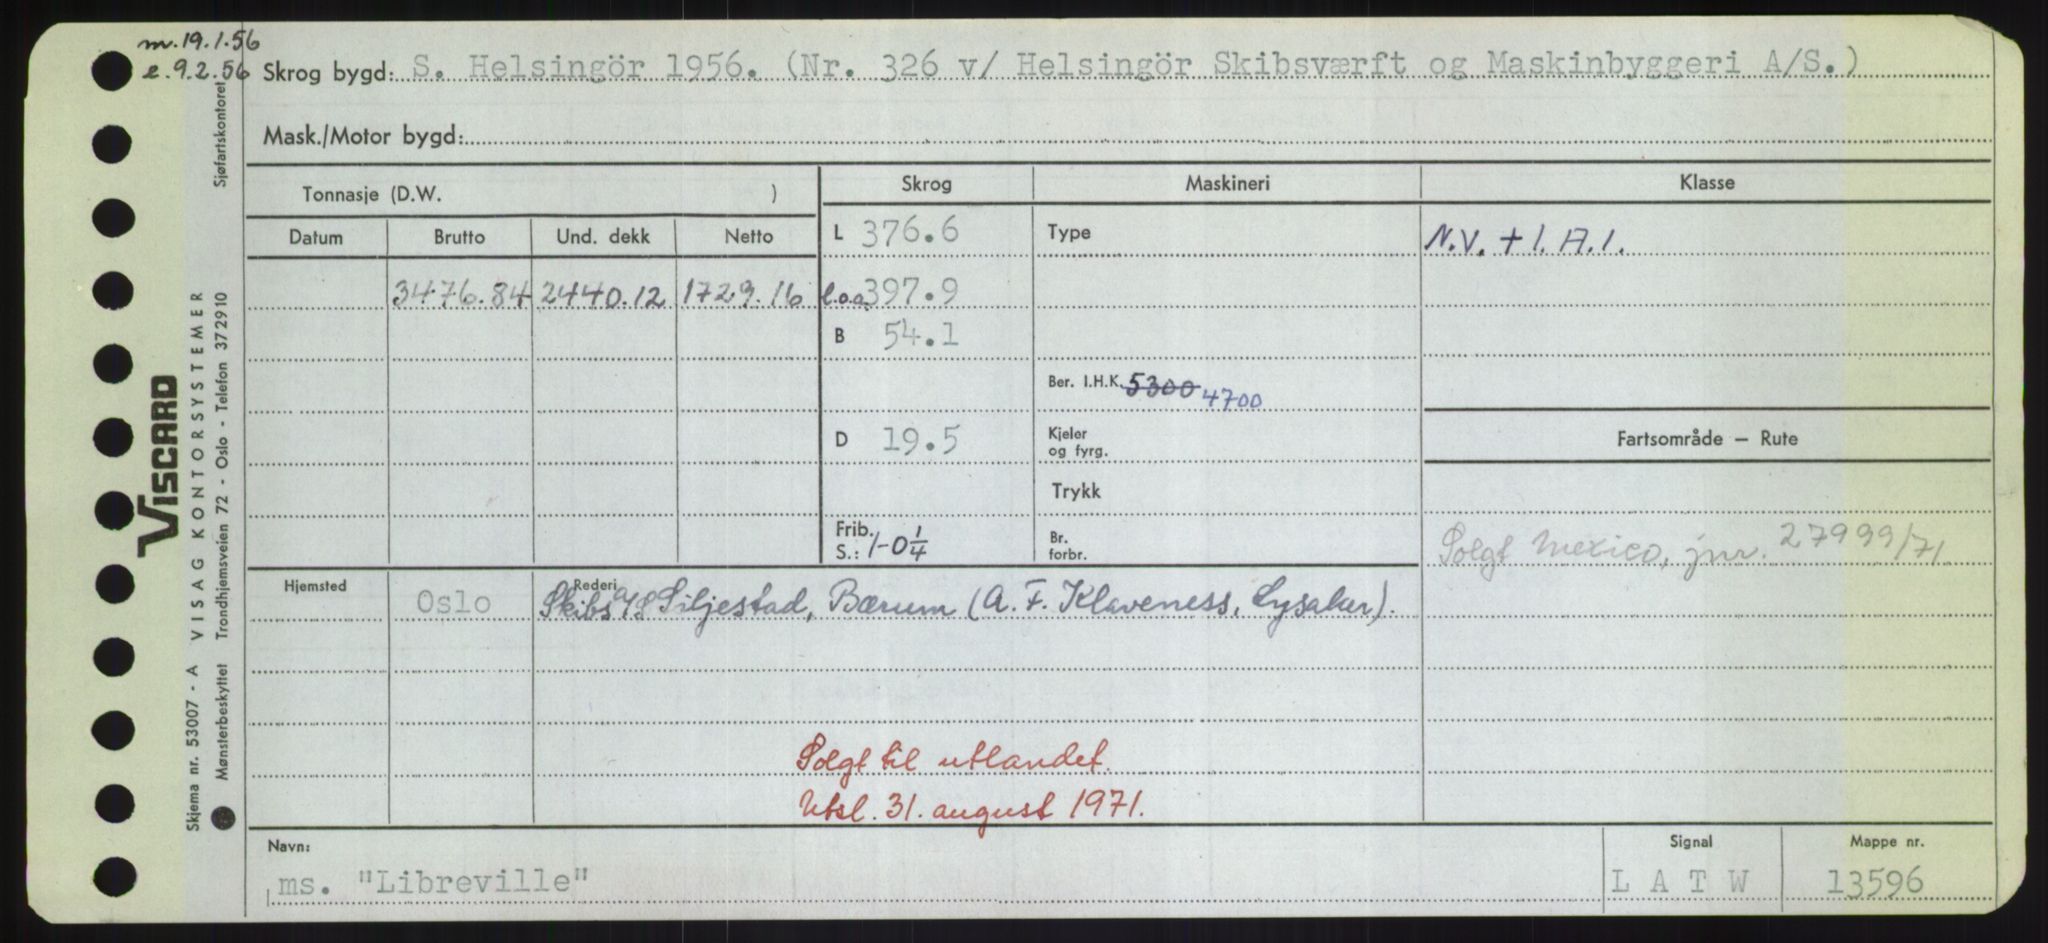 m. 19.1.56
e. 9.2.56
Skrog bygd: S. Helsingör 1956. (Nr. 326 v/ Helsingör Skibsværft og Maskinbyggeri A/S.)
Mask./Motor bygd:
Tonnasje (D.W. )
Skrog Maskineri Klasse
Datum Brutto Und. dekk Netto
L 376.6 Type N.V. + 1. A. 1.
3476.84 2440.12 1729.16 l.o.a. 397.9
B 54.1
Ber. I.H.K. 5300 4700
D 19.5 Kjeler og fyrg. Fartsområde — Rute
Trykk
Frib. S.: 1-0 1/4 Br. forbr. Solgt Mexico, jnr. 27999/71.
Hjemsted Oslo Rederi Skibs A/S Siljestad, Bærum (A. F. Klaveness, Lysaker).
Solgt til utlandet.
Utsl. 31. august 1971.
Navn: Signal Mappe nr.
ms. "Libreville" L A T W 13596
VISCARD
Skjema nr. 53007 - A VISAG KONTORSYSTEMER
Mønsterbeskyttet Trondhjemsveien 72 - Oslo - Telefon 372910 Sjøfartskontoret